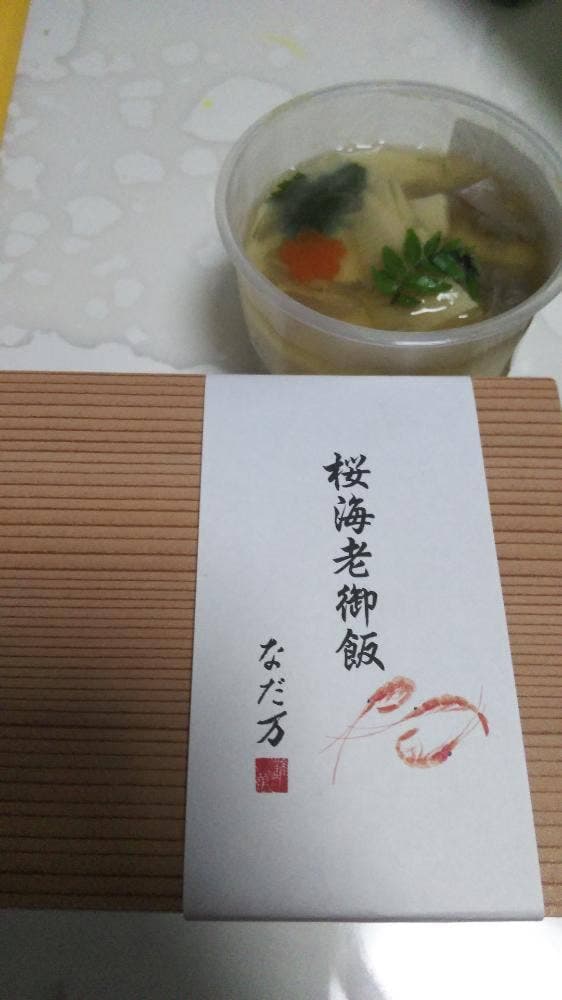 桜海老御飯
なだ万